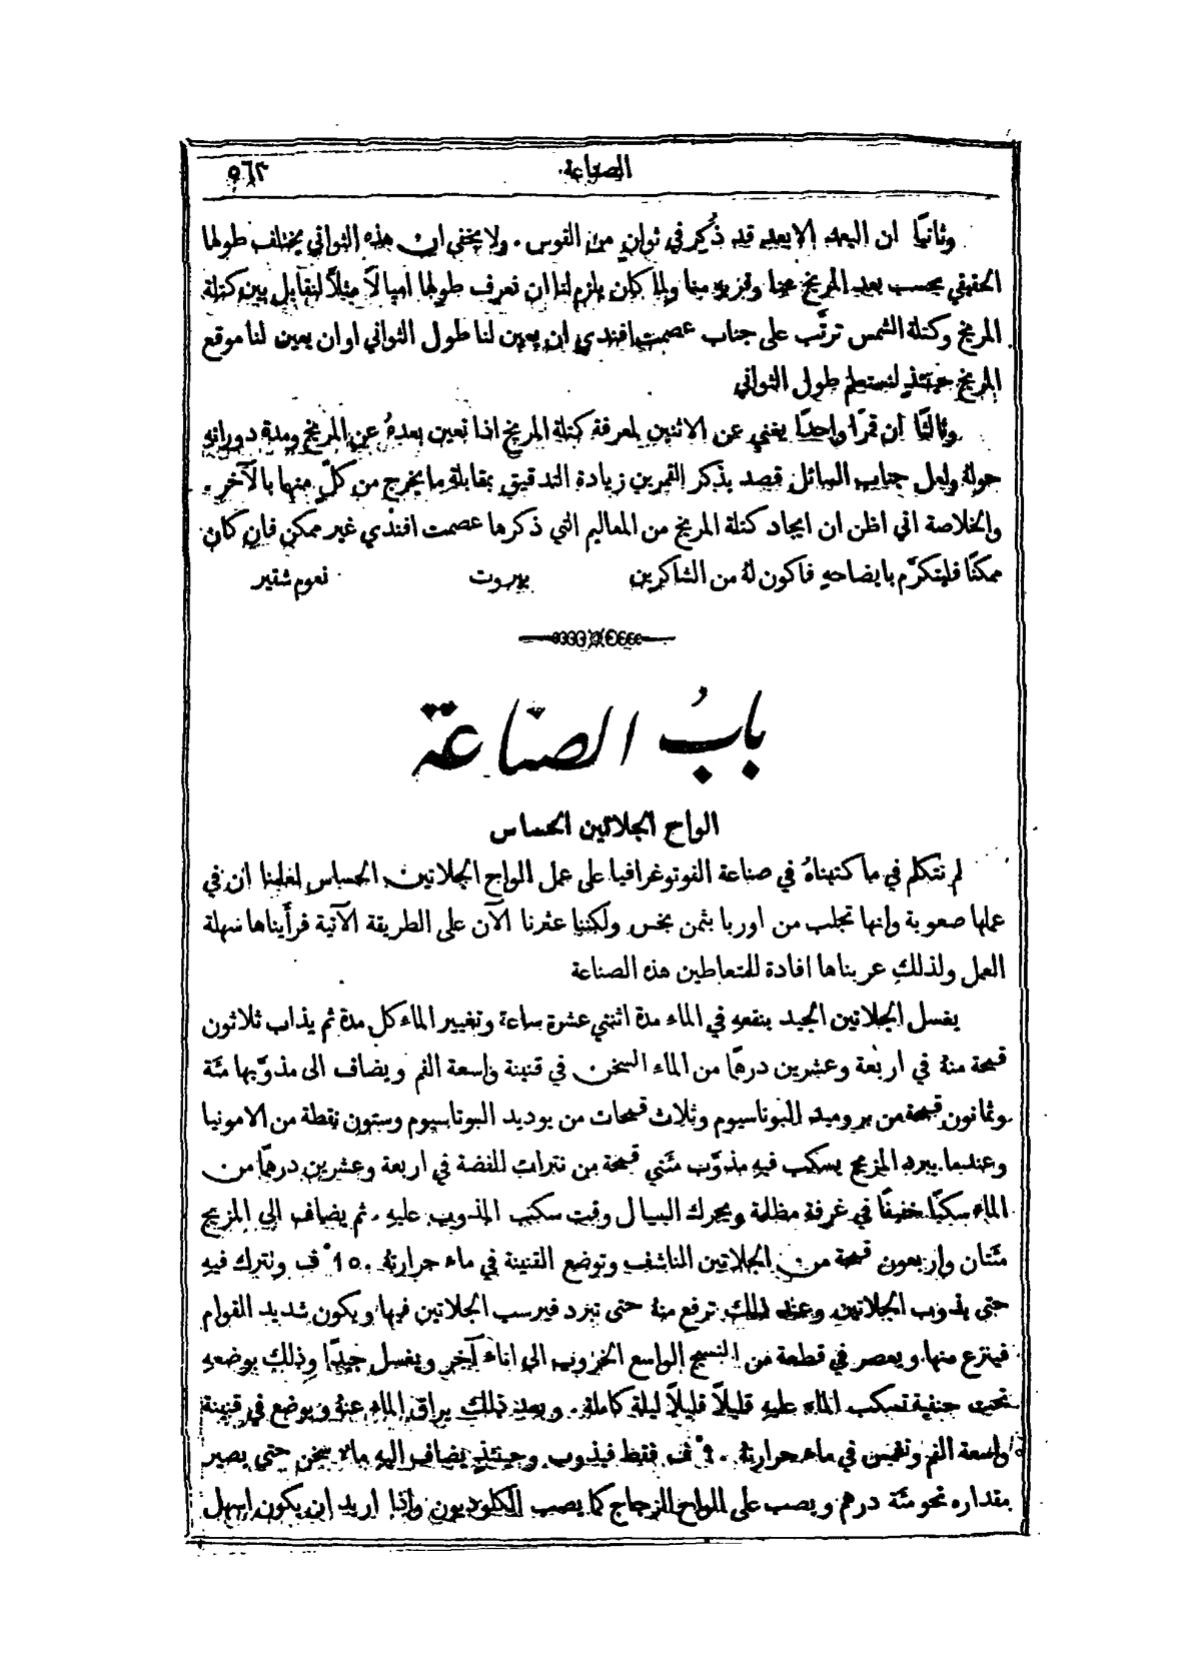 الصناعة ٥٦٣
وثانيًا ان البعد الابعد قد ذُكِر في ثوانٍ من القوس . ولا يخفى ان هذه الثواني يختلف طولها
الحقيقي بحسب بعد المريخ عنا وقربهِ منا ولما كان يلزم لنا ان نعرف طولها اميالاً مثلاً لنقابل بين كتلة
المريخ وكتلة الشمس ترتَّب على جناب عصمت افندي ان يعين لنا طول الثواني او ان يعين لنا موقع
المريخ حينئذٍ لنستعلم طول الثواني
وثالثًا ان قمرًا واحدًا يغني عن الاثنين لمعرفة كتلة المريخ اذا تعين بعدهُ عن المريخ ومدة دورانهِ
حولهُ ولعل جناب السائل قصد بذكر القمرين زيادة التدقيق بمقابلة ما يخرج من كلٍّ منها بالآخر .
والخلاصة اني اظن ان ايجاد كتلة المريخ من المعاليم التي ذكرها عصمت افندي غير ممكن فان كان
ممكنًا فليتكرّم بايضاحهِ فاكون لهُ من الشاكرين بيروت نعوم شقير
بابُ الصناعة
الواح الجلاتين الحساس
لم نتكلم في ما كتبناهُ في صناعة الفوتوغرافيا على عمل الواح الجلاتين الحساس لعلمنا ان في
عملها صعوبة وانها تجلب من اوربا بثمن بخس ولكننا عثرنا الآن على الطريقة الآتية فرأَيناها سهلة
العمل ولذلك عربناها افادة للمتعاطين هذه الصناعة
يغسل الجلاتين الجيد بنقعهِ في الماء مدة اثنتي عشرة ساعة وتغيير الماء كل مدة ثم يذاب ثلاثون
قمحة منهُ في اربعة وعشرين درهمًا من الماء السخن في قنينة واسعة الفم ويضاف الى مذوَّبها مئة
وثمانون قمحة من بروميد البوتاسيوم وثلاث قمحات من يوديد البوتاسيوم وستون نقطة من الامونيا
وعندما يبرد المزيج يسكب فيهِ مذوَّب مئتي قمحة من نترات الفضة في اربعة وعشرين درهمًا من
الماء سكبًا خفيفًا في غرفة مظلمة ويحرك السيال وقت سكب المذوب عليهِ . ثم يضاف الى المزيج
مئتان واربعون قمحة من الجلاتين الناشف وتوضع القنينة في ماء حرارتهُ ١٥٠° ف وتترك فيهِ
حتى يذوب الجلاتين وعند ذلك ترفع منهُ حتى تبرد فيرسب الجلاتين فيها ويكون شديد القوام
فينزع منها ويعصر في قطعة من النسيج الواسع الخروب الى اناء آخر ويغسل جيدًا وذلك بوضعهِ
تحت حنفية تسكب الماء عليهِ قليلاً قليلاً ليلة كاملة . وبعد ذلك يراق الماء عنهُ ويوضع في قنينة
واسعة الفم وتغمس في ماء حرارتهُ ٩٠° ف فقط فيذوب وحينئذٍ يضاف اليهِ ماء سخن حتى يصير
مقداره نحو مئة درهم ويصب على الواح الزجاج كما يصب الكلوديون واذا اريد ان يكون اسهل